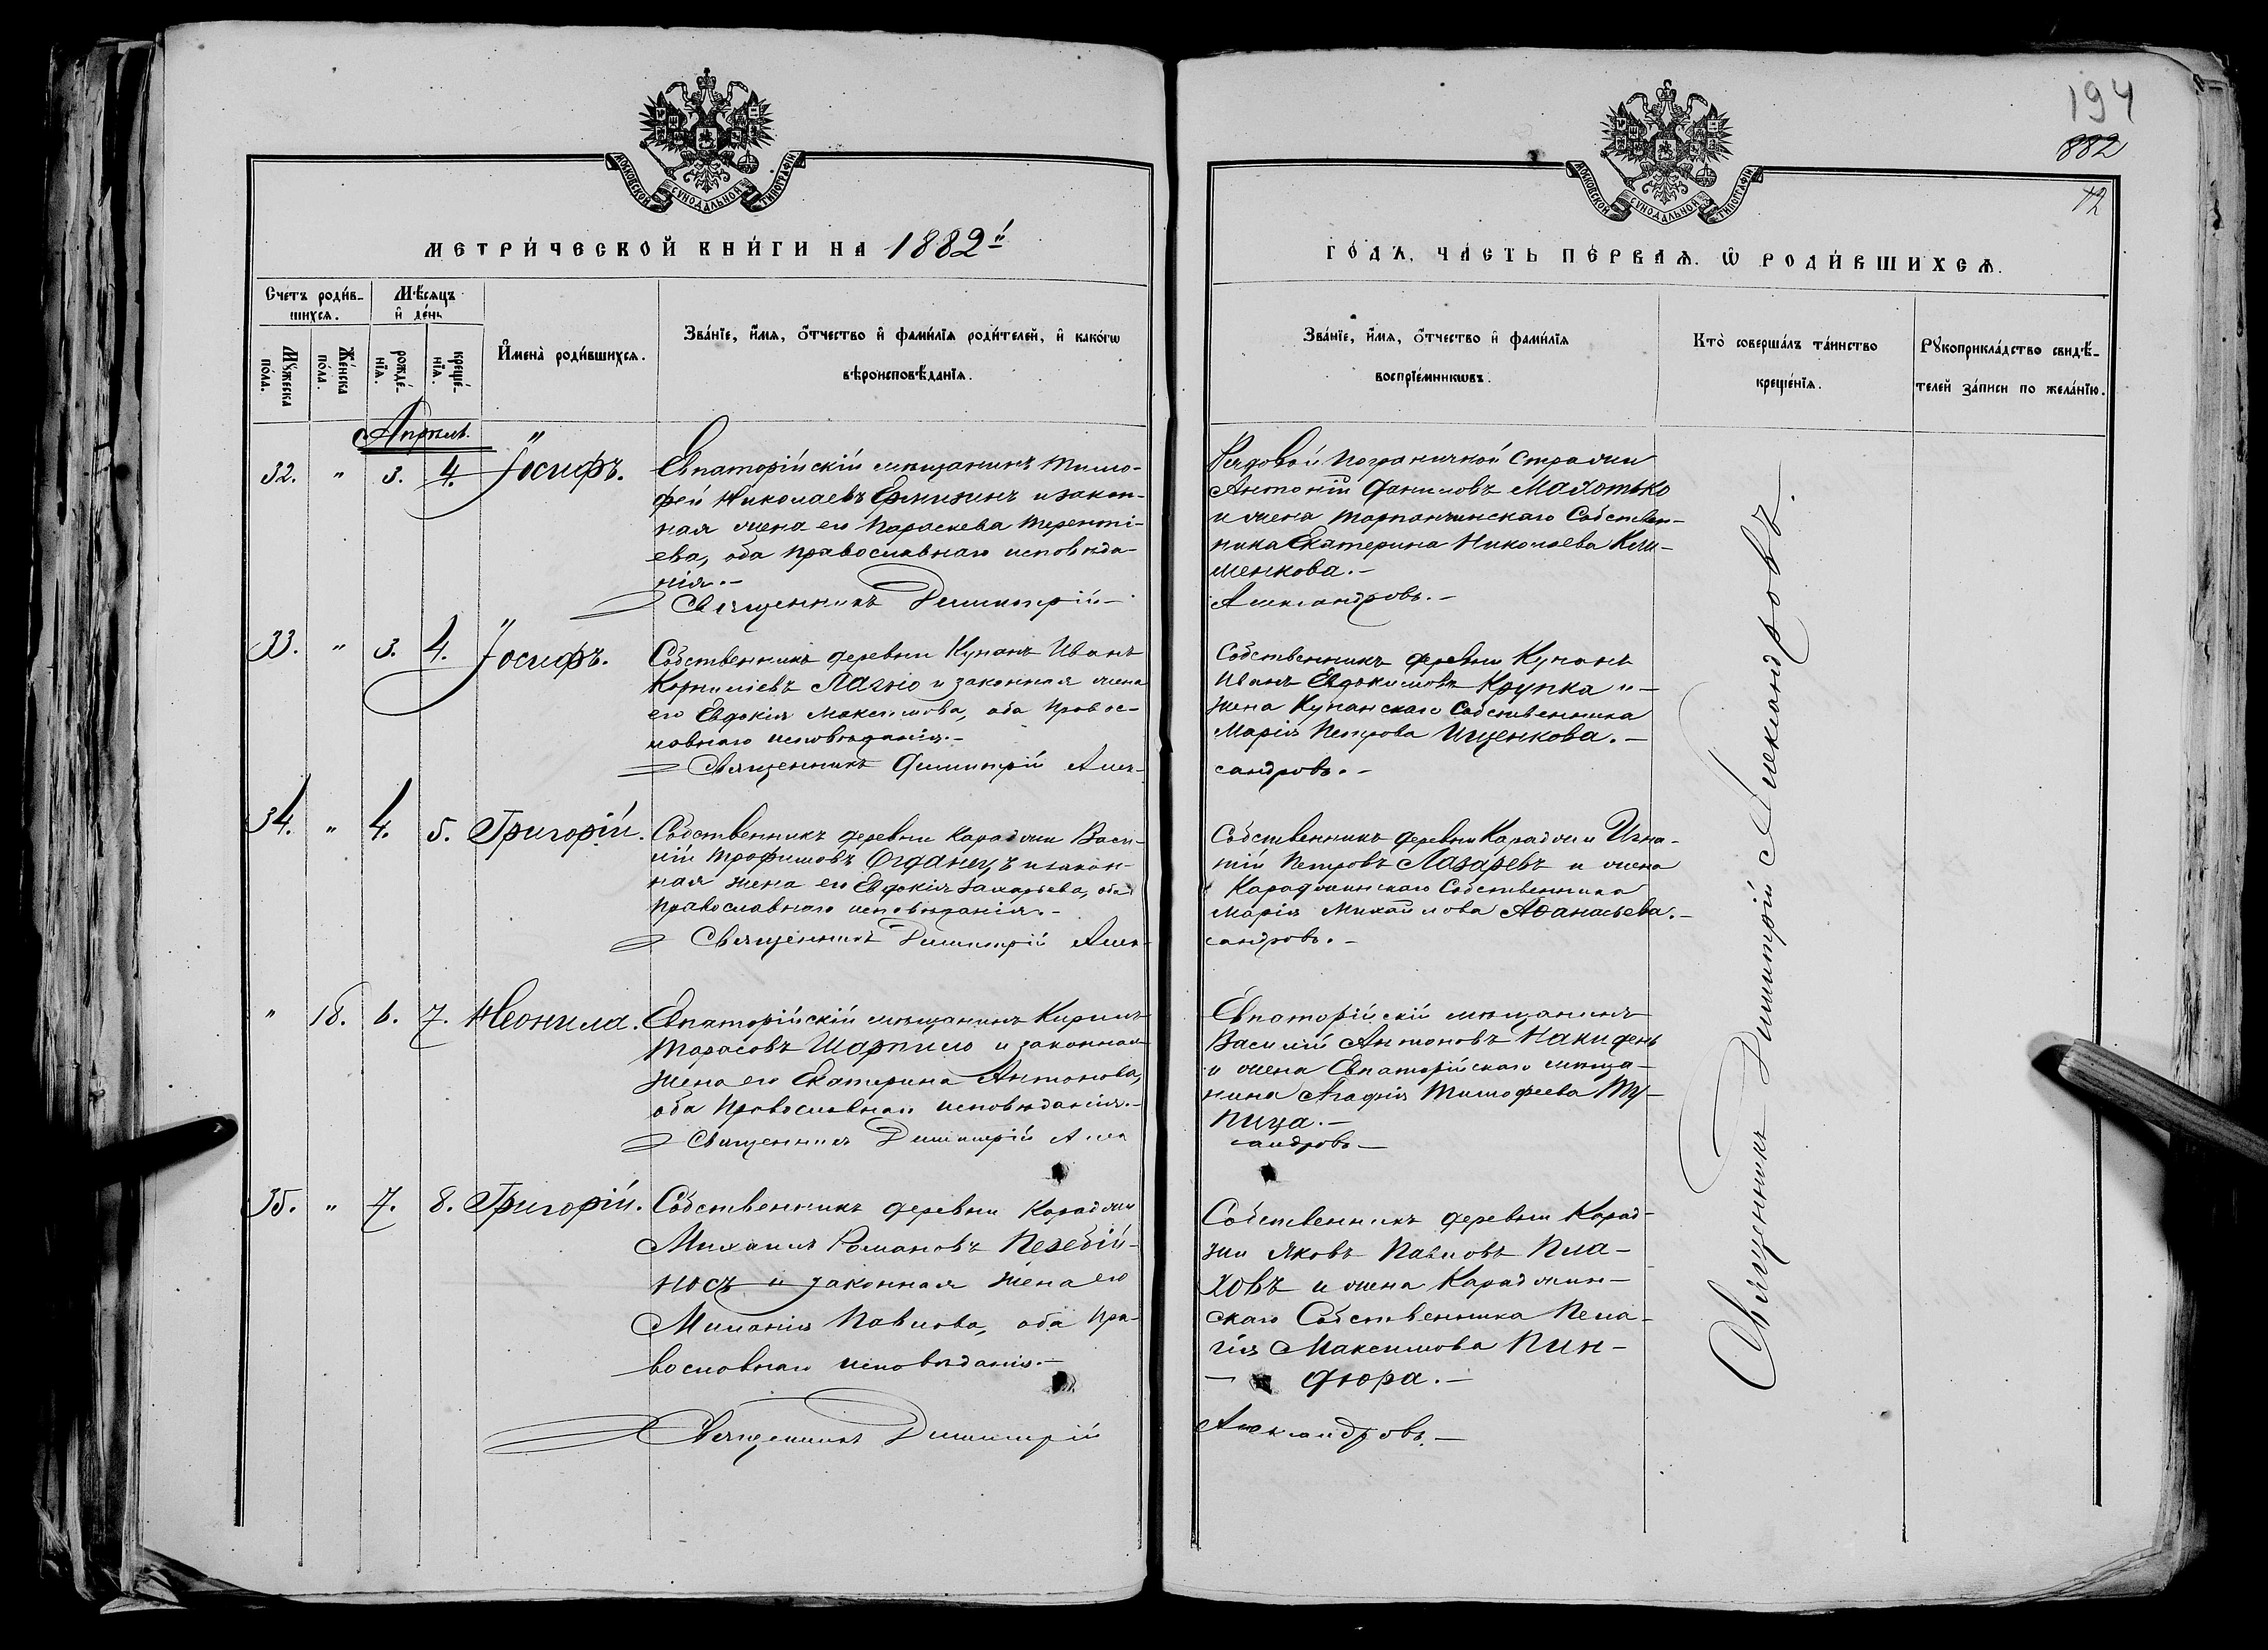 194
882
12
МОСКОВСКОЙ СУНОДАЛЬНОЙ ТИПОГРАФІИ
МОСКОВСКОЙ СУНОДАЛЬНОЙ ТИПОГРАФІИ
МЕТРИ́ЧЕСКОЙ КНИ́ГИ НА 1882й
ГО́ДЪ, ЧА́СТЬ ПЕ́РВАЯ. Ѿ РОДИ́ВШИХСѦ.
Сче́тъ роди́в-
шихсѧ.
Мѣ́сѧцъ
и҆ де́нь
Мꙋ́жеска
по́ла.
Же́нска
по́ла.
рожде́-
нїѧ.
креще́-
нїѧ.
И҆мена̀ роди́вшихсѧ.
Зва́нїе, и҆́мѧ, ѻ҆́тчество и҆ фами́лїѧ роди́телей, и҆ како́гѡ
вѣроисповѣ́данїѧ.
Зва́нїе, и҆́мѧ, ѻ҆́тчество и҆ фами́лїѧ
воспрїе́мникѡвъ.
Кто̀ соверша́лъ та́инство
креще́нїѧ.
Рꙋкоприкла́дство свидѣ́-
телей за́писи по жела́нїю.
Апрѣль.
32. " 3. 4. Іосифъ.
Евпаторійскій мѣщанинъ Тимо-
фей Николаевъ Ермизинъ и закон-
ная жена его Параскева Теренті-
ева, оба православнаго исповѣда-
нія.-
Священникъ Димитрій
Рядовой Пограничной Стражи
Антоній Даниловъ Махотько
и жена Тарпанчинскаго Собствен-
ника Екатерина Николаева Кли-
менкова.-
Александровъ.-
33. " 3. 4. Іосифъ.
Собственникъ деревни Кунанъ Иванъ
Корниліевъ Лагно и законная жена
его Евдокія Максимова, оба Правос-
лавнаго исповѣданія.-
Священникъ Димитрій Алек-
Собственникъ деревни Кунанъ
Иванъ Евдокимовъ Крупка и-
жена Кунанскаго Собственника
Марія Петрова Ищенкова.-
сандровъ.-
34. " 4. 5. Григорій.
Собственникъ деревни Караджи Васи-
лій Трофимовъ Огданецъ и закон-
ная жена его Евдокія Захарьева, оба
Православнаго исповѣданія.-
Священникъ Димитрій Алек-
Собственникъ деревни Караджи Игна-
тій Петровъ Лазаревъ и жена
Караджинскаго Собственника
Марія Михайлова Аѳанасьева.-
сандровъ.-
" 18. 6. 7. Неонила.
Евпаторійскій мѣщанинъ Кирилъ
Тарасовъ Шарпило и законная
жена его Екатерина Антонова,
оба Православнаго исповѣданія.-
Священникъ Димитрій Алек
Евпаторійскій мѣщанинъ
Василій Антоновъ Накидень
и жена Евпаторійскаго мѣща-
нина Агафія Тимофеева Ту-
пица.-
сандровъ-
35. " 7. 8. Григорій.
Собственникъ деревни Караджи
Михаилъ Романовъ Перебій-
носъ и законная жена его
Миланія Павлова, оба Пра-
вославнаго исповѣданія.-
Священникъ Димитрій
Собственникъ деревни Карад-
жи Яковъ Павловъ Пла-
ховъ и жена Караджин-
скаго Собственника Пела-
гія Максимова Пин-
дюра.-
Александровъ.-
Священникъ Димитрій Александровъ.